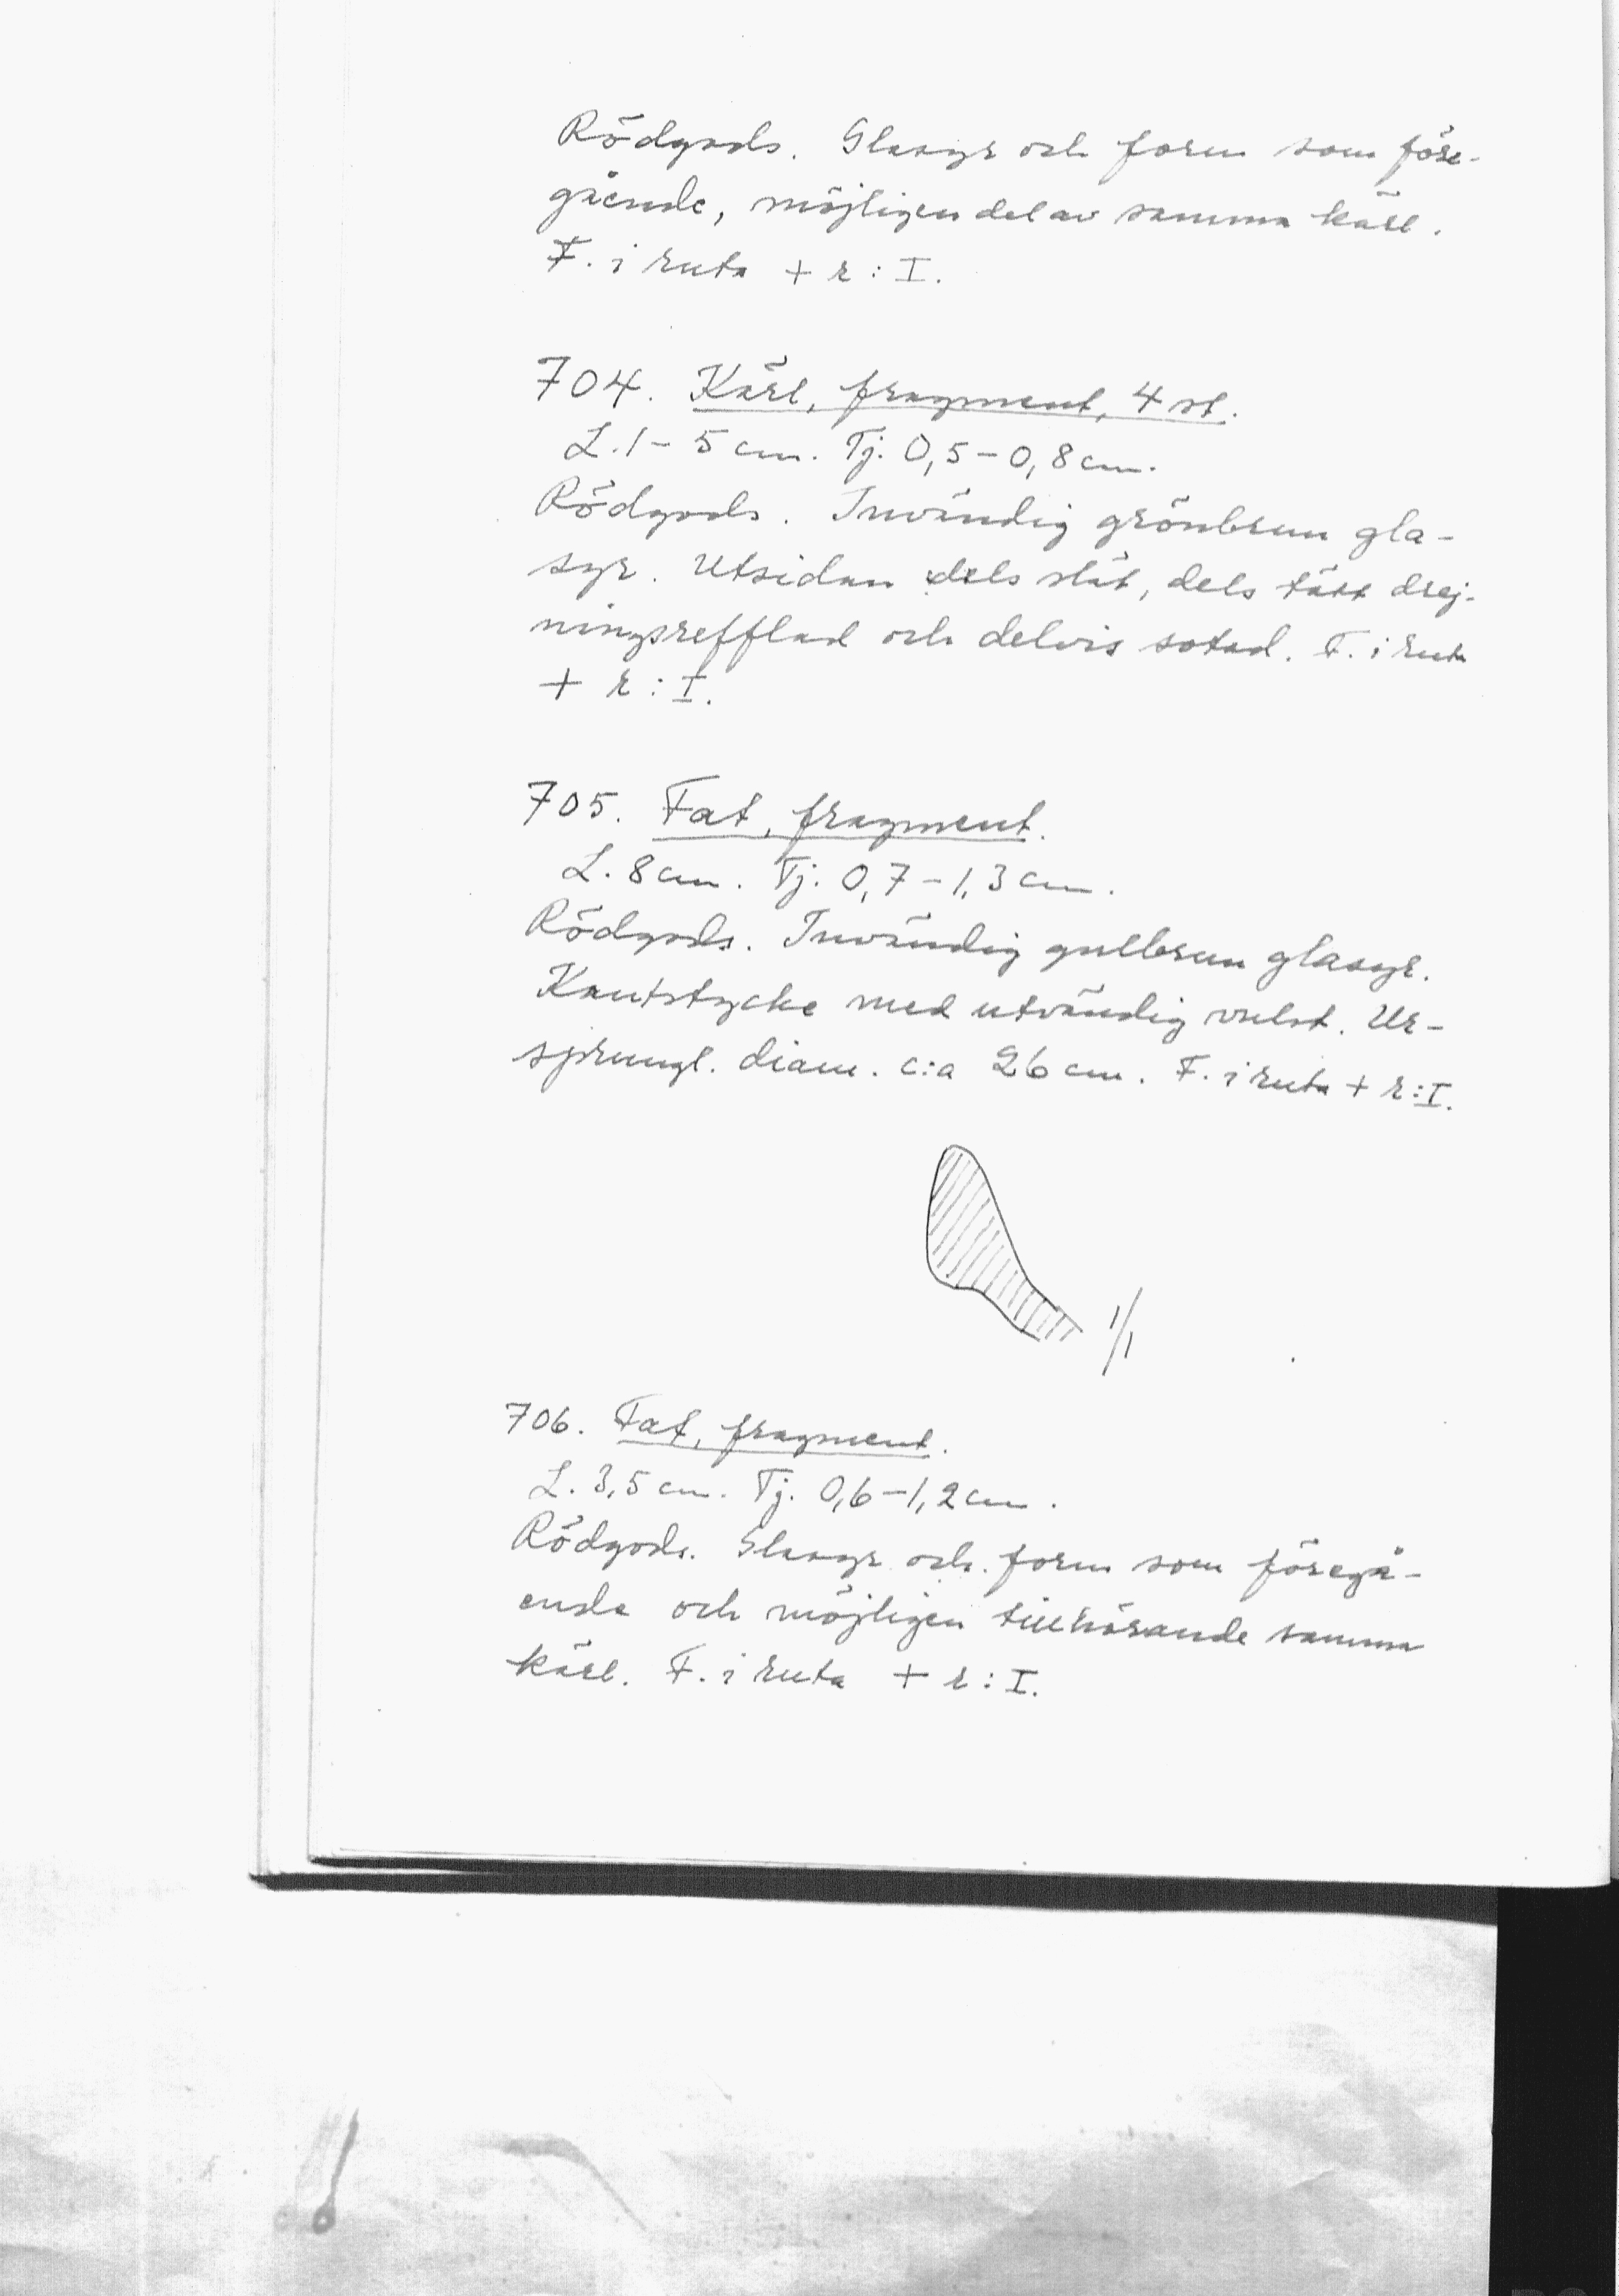 Rödgods. Glasyr och form som före-
gående, möjligen del av samma kärl.
F. i ruta + r : I.
704. Kärl, fragment, 4 st.
L. 1 - 5 cm. Tj. 0,5 - 0,8 cm.
Rödgods. Invändig grönbrun gla-
syr. Utsidan dels slät, dels tätt drej-
ningsrefflad och delvis sotad. F. i ruta
+ r : I.
705. Fat, fragment.
L. 8 cm. Tj. 0,7 - 1,3 cm.
Rödgods. Invändig gulbrun glasyr.
Kantstycke med utvändig vulst. Ur-
sprungl. diam. c:a 26 cm. F. i ruta + r : I.
1/1
706. Fat, fragment.
L. 3,5 cm. Tj. 0,6 - 1,2 cm.
Rödgods. Glasyr och form som föregå-
ende och möjligen tillhörande samma
kärl. F. i ruta + r : I.